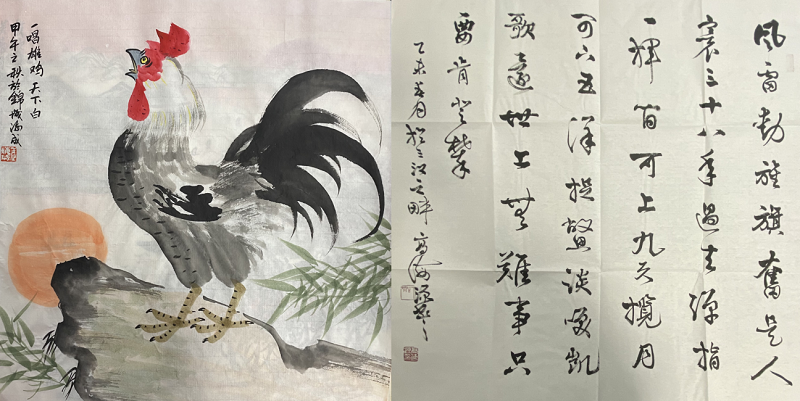 一唱雄鸡天下白
甲午之秋於錦城海成
风雷動旌旗奮是人
寰三十八年過去弹指
一揮间可上九天揽月
可下五洋捉鳖谈笑凯
歌還世上無難事只
要肯登攀
乙未 月於三江之畔